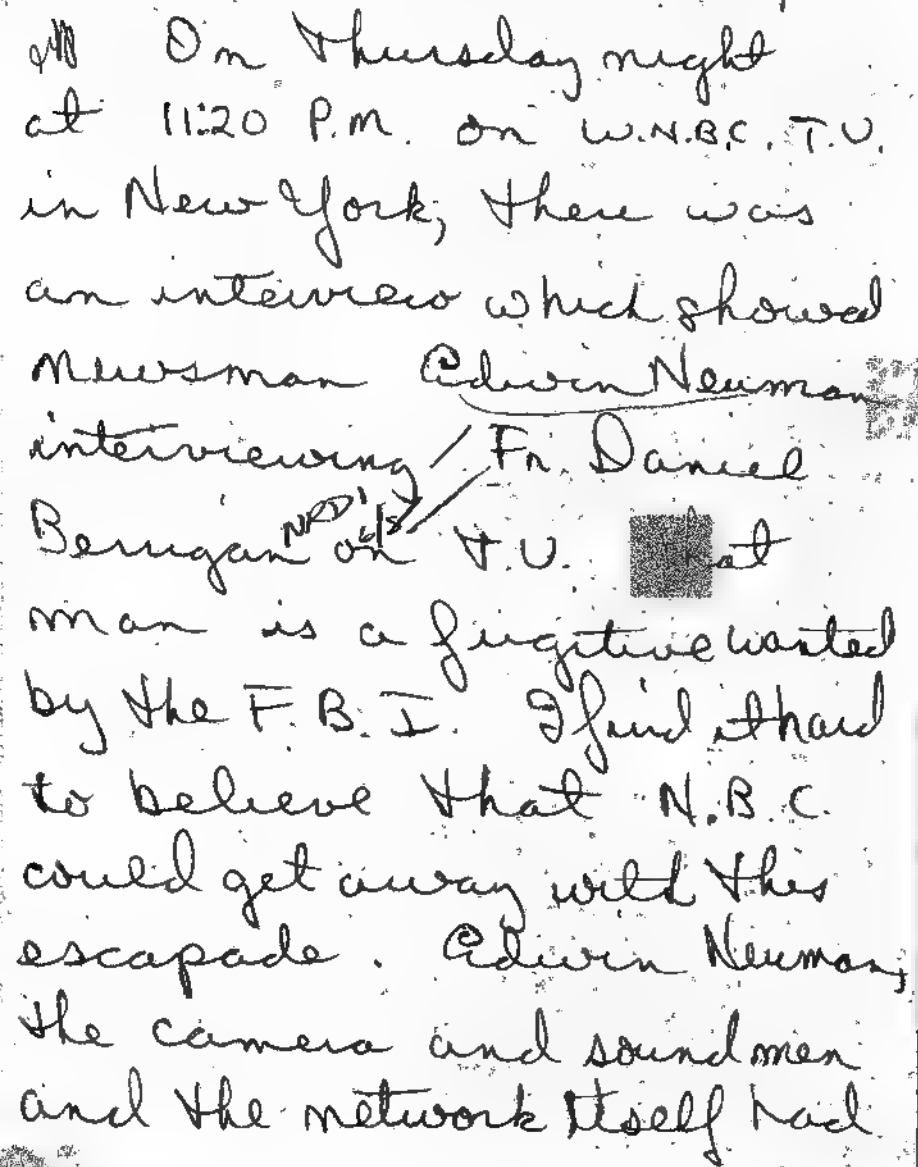 On Thursday night
at 11:20 P.M. on W.N.B.C. T.V.
in New York, there was
an interview which showed
Newsman Edwin Neuman
interviewing Fr. Daniel
Berrigan on T.V. that
man is a fugitive wanted
by the F.B.I. I find it hard
to believe that N.B.C.
could get away with this
escapade. Edwin Neuman,
the camera and sound men
and the network itself had